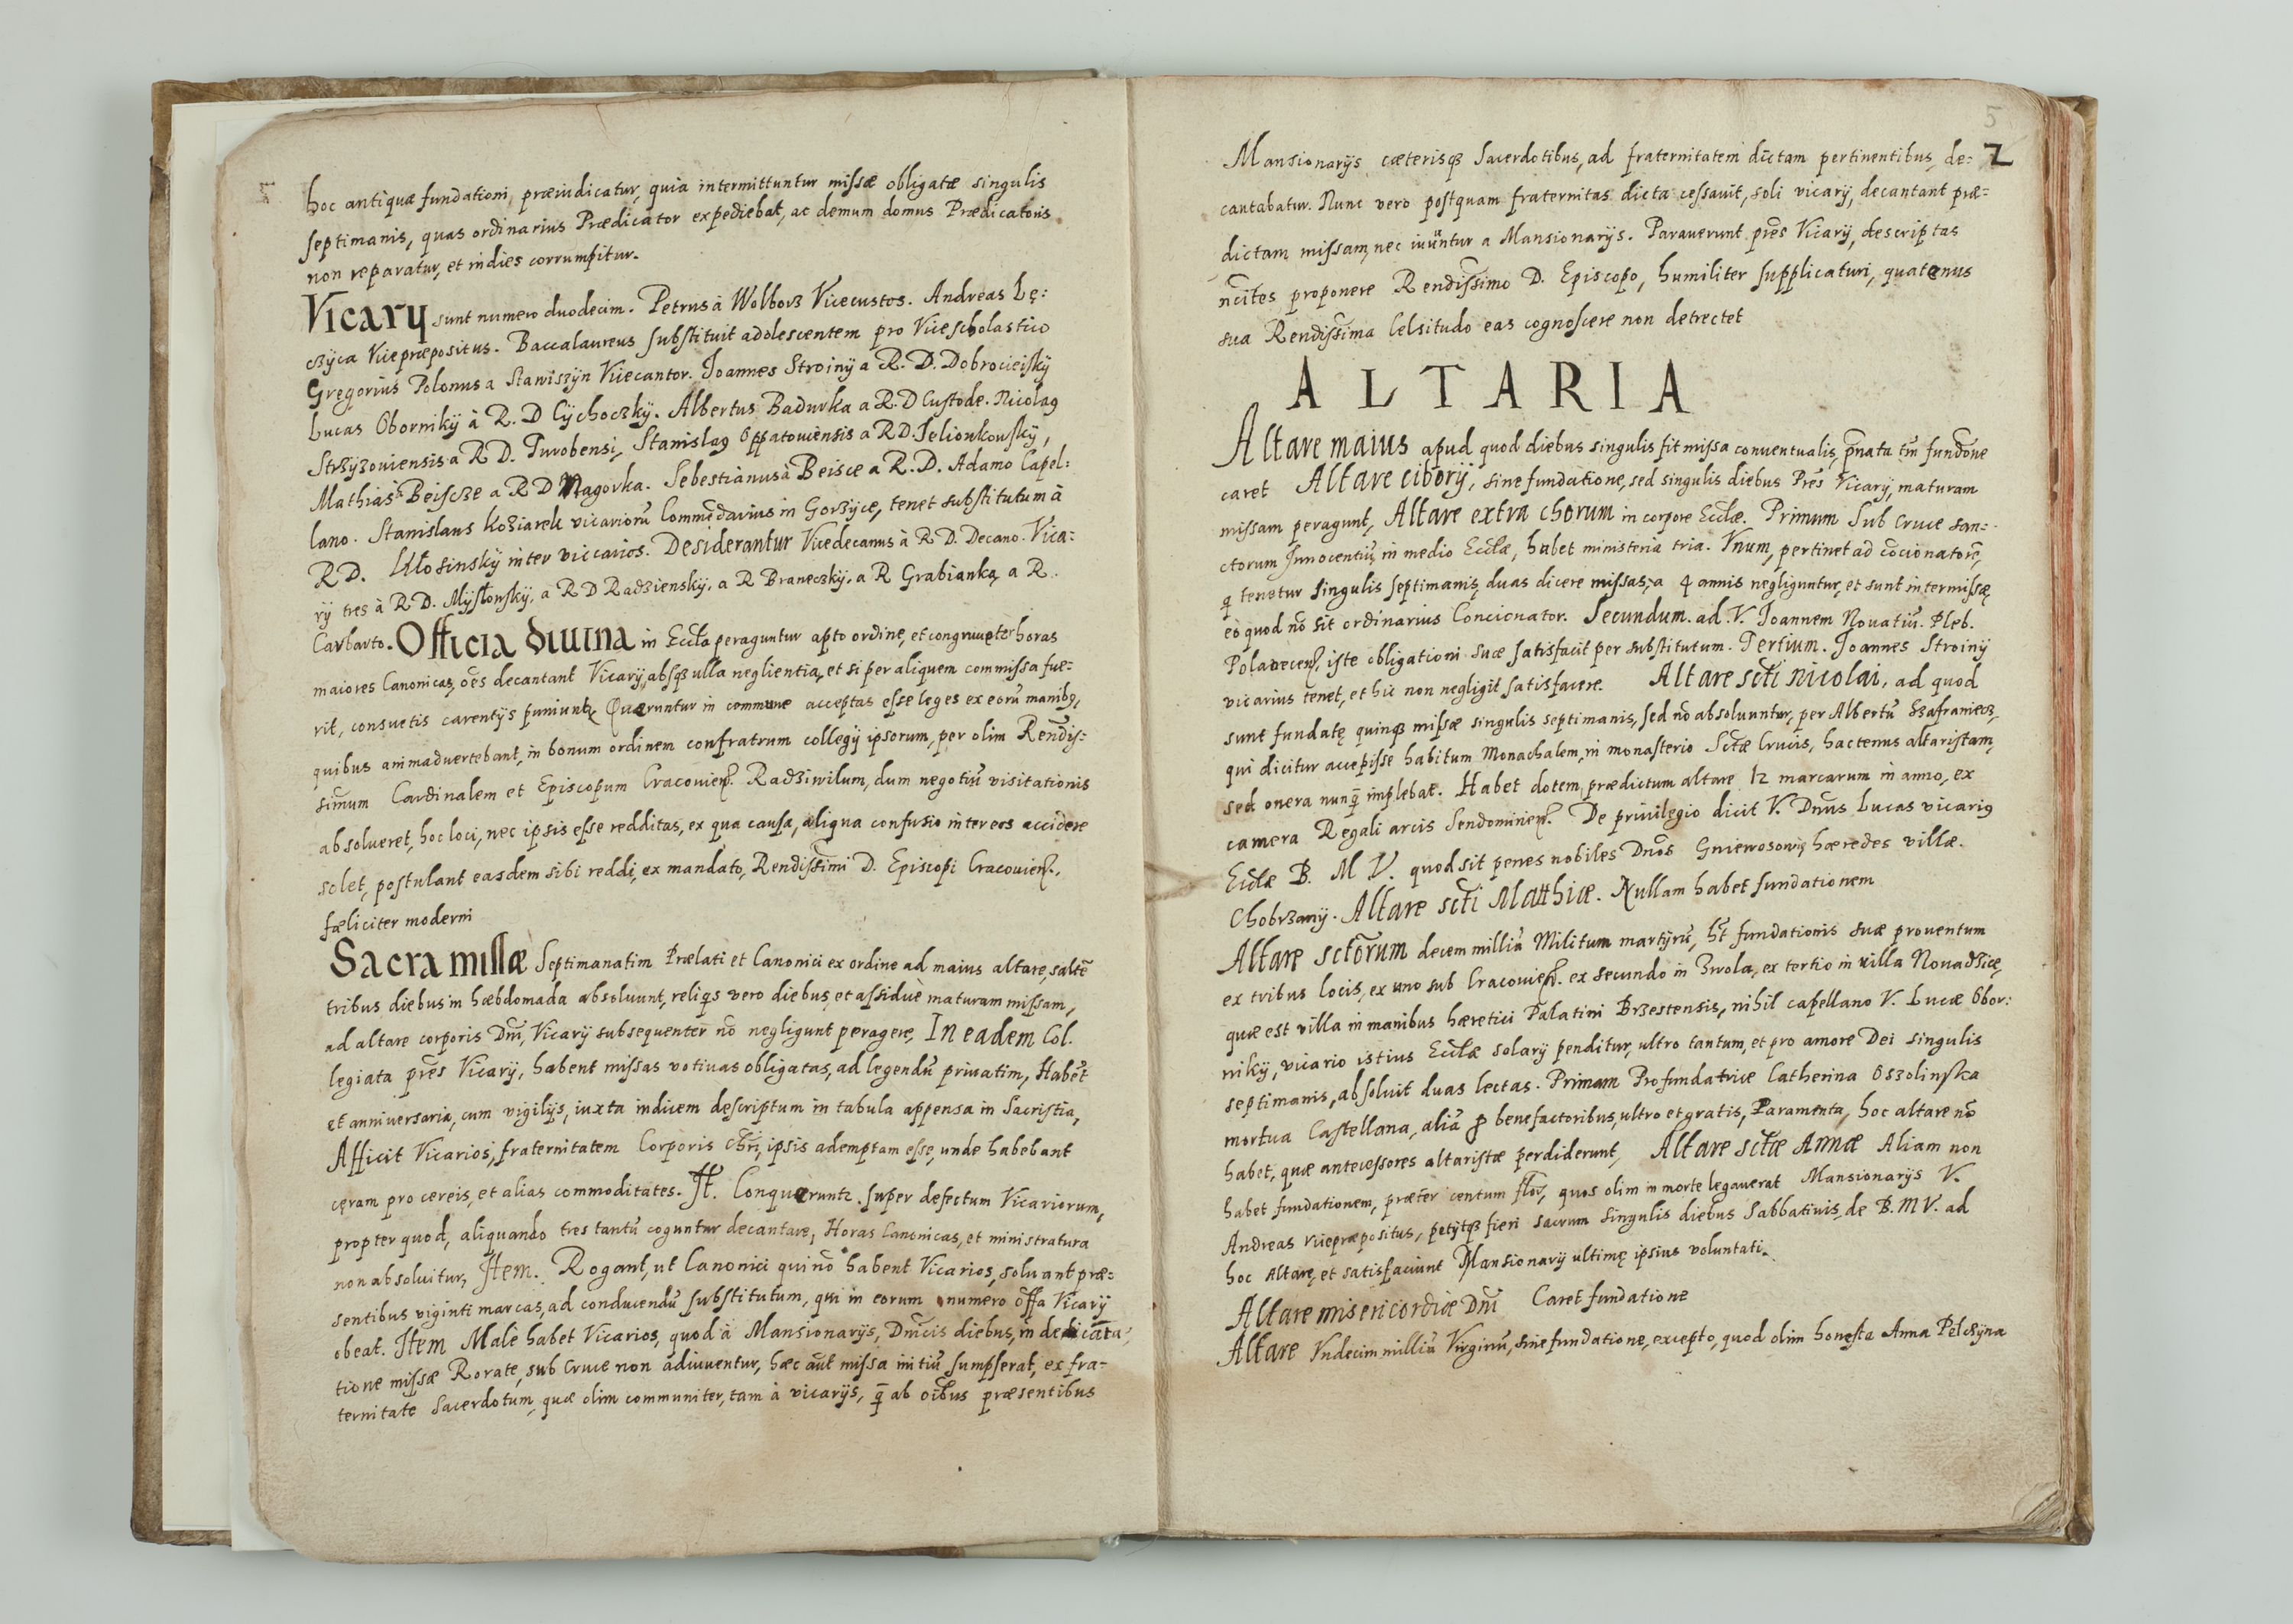 hoc antiquæ fundationi, præiudicatur, quia intermittuntur missæ obligatæ singulis
septimanis, quas ordinarius Prædicator expediebat, ac demum domus Prædicatoris
non reparatur, et indies corrumpitur.
Vicarÿ sunt numero duodecim. Petrus à Wolborz Vicecustos. Andreas Lę:
czÿca Vicepræpositus. Baccalaureus substituit adolescentem pro Vicescholastico
Gregorius Polonus a Stawiszÿn Vicecantor. Joannes Stroinÿ a R. D. Dobrocieiskÿ
Lucas Obornikÿ à R. D Cÿchoczkÿ. Albertus Badurka a R. D Custode. Nicolaꝰ
Strzÿzouiensis a R D. Turobensi, Stanislaꝰ Oppatouiensis a R D. Jelionkowskÿ,
Mathias à Beiscze a R D Nagorka. Sebestianus à Beisce a R. D. Adamo Capel:
lano. Stanislaus Koziarek vicariorũ Commẽdarius in Gorzÿce, tenet substitutum à
R D. Kłosinskÿ inter viccarios. Desiderantur Vicedecanus à R D. Decano. Vica:
rÿ tres à R D. Mÿslowskÿ, a R D Radzienskÿ, a R Braneczkÿ, a R Grabianka, a R
Carbarto. Officia diuina in Eccła peraguntur apto ordine, et congruẽter horas
maiores Canonicas, oẽs decantant Vicarÿ, absqȝ ulla neglientia, et si per aliquem commissa fue-
rit, consuetis carentÿs puniuntr. Quæruntur in commune acceptas esse leges ex eorũ manibȝ,
quibus animaduertebant, in bonum ordinem confratrum collegÿ ipsorum, per olim Rendis:
simum Cardinalem et Episcopum Cracouien̄. Radziwilum, dum negotiũ visitationis
absolueret, hoc loci, nec ipsis esse redditas, ex qua causa, aliqua confusio inter eos accidere
solet, postulant easdem sibi reddi, ex mandato, Rendissimi D. Episcopi Cracouien̄.,
fæliciter moderni
Sacra missæ Septimanatim Prælati et Canonici ex ordine ad maius altare, saltẽ
tribus diebus in hæbdomada absoluunt, reliqs vero diebus, et assiduè maturam missam,
ad altare corporis Dñi, Vicarÿ subsequenter nõ negligunt peragere, In eadem Col.
legiata přes Vicarÿ, habent missas votiuas obligatas, ad legendũ priuatim, Habẽt
et anniuersaria, cum vigilÿs, iuxta indicem descriptum in tabula appensa in Sacristia,
Afficit Vicarios, fraternitatem Corporis Chri, ipsis ademptam esse, unde habebant
cęram pro cereis, et alias commoditates. It. Conquæruntr. super defectum Vicariorum,
propter quod, aliquando tres tantũ coguntur decantare, Horas Canonicas, et ministratura
non absoluitur, Item. Rogant, ut Canonici qui nõ habent Vicarios, soluant præ-
sentibus viginti marcas, ad conducendũ substitutum, qui in eorum numero offa Vicarÿ
obeat. Item Malè habet Vicarios, quod à Mansionarÿs, Dnicis diebus, in dedicata:
tione missæ Rorate, sub Cruce non adiuuentur, hæc aũt missa initiũ sumpserat, ex fra-
ternitate Sacerdotum, quæ olim communiter, tam à vicarÿs, q̄ ab oĩbus præsentibus
5
2
Mansionarÿs cæterisqȝ Sacerdotibus, ad fraternitatem dictam pertinentibus, de:
cantabatur. Nunc vero postquam fraternitas dicta cessauit, soli vicarÿ, decantant præ-
dictam missam, nec iuũntur a Mansionarÿs. Parauerunt přes Vicarÿ, descriptas
ncites proponere Rendissimo D. Episcopo, humiliter supplicaturi, quatenus
sua Rendissima Celsitudo eas cognoscere non detrectet
ALTARIA
Altare maius apud quod diebus singulis fit missa conuentualis, p̃nata tm̃ fundõne
caret Altare ciborÿ, sine fundatione, sed singulis diebus Přes Vicarÿ, maturam
missam peragunt, Altare extra chorum in corpore Ecclæ. Primum Sub Cruce san:
ctorum Innocentiũ, in medio Ecclæ, habet ministeria tria. Vnum, pertinet ad cõcionatorẽ,
q tenetur singulis septimanis, duas dicere missas, a 4 annis negliguntur, et sunt intermissę
eo quod nõ sit ordinarius Concionator. Secundum. ad. V. Joannem Nouatiũ. Pleb.
Polanecen̄., iste obligationi suæ satisfacit per substitutum. Tertium. Joannes Stroinÿ
vicarius tenet, et hic non negligit satisfacere. Altare scti Nicolai, ad quod
sunt fundatę quinqȝ missæ singulis septimanis, sed nõ absoluuntur, per Albertũ Szafraniecz,
qui dicitur accepisse habitum Monachalem, in monasterio Sctæ Crucis, hactenus altaristam,
sed onera nunq̄ implebat. Habet dotem prædictum altare 12 marcarum in anno, ex
camera Regali arcis Sendomirien̄. De priuilegio dicit V. Dnus Lucas vicariꝰ
Ecclæ B. M V. quod sit penes nobiles Dnos Gniewosowÿ hæredes villæ.
Chobrzanÿ. Altare scti Matthiæ. Nullam habet fundationem
Altare sctorum decem milliũ Militum martÿrũ, ht̃ fundationis suæ prouentum
ex tribus locis, ex uno sub Cracouien̄. ex secundo in Zwola, ex tertio in villa Nouadzice,
quæ est villa in manibus hæretici Palatini Brzestensis, nihil capellano V. Lucæ Obor:
nikÿ, vicario istius Ecclæ solarÿ penditur, ultro tantum, et pro amore Dei singulis
septimanis, absoluit duas lectas. Primam Pro fundatrice Catherina Oszolinska
mortua Castellana, aliã ꝓ benefactoribus, ultro et gratis, Paramenta, hoc altare nõ
habet, quæ antecessores altaristæ perdiderunt, Altare sctæ Annæ Aliam non
habet fundationem, præter centum flor, quos olim in morte legauerat Mansionarÿs V.
Andreas vicepræpositus, petÿtqȝ fieri sacrum singulis diebus Sabbatiuis, de B. M V. ad
hoc Altare, et satisfaciunt Mansionarÿ ultimę ipsius voluntati.
Altare misericordiæ Dñi Caret fundatione
Altare Vndecim milliũ Virginũ, sine fundatione, excepto, quod olim honesta Anna Pelczÿna